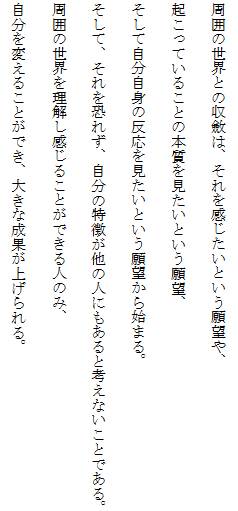 周囲の世界との収斂は、それを感じたいという願望や、
起こっていることの本質を見たいという願望、
そして自分自身の反応を見たいという願望から始まる。
そして、それを恐れず、自分の特徴が他の人にもあると考えないことである。
周囲の世界を理解し感じることができる人のみ、
自分を変えることができ、大きな成果が上げられる。